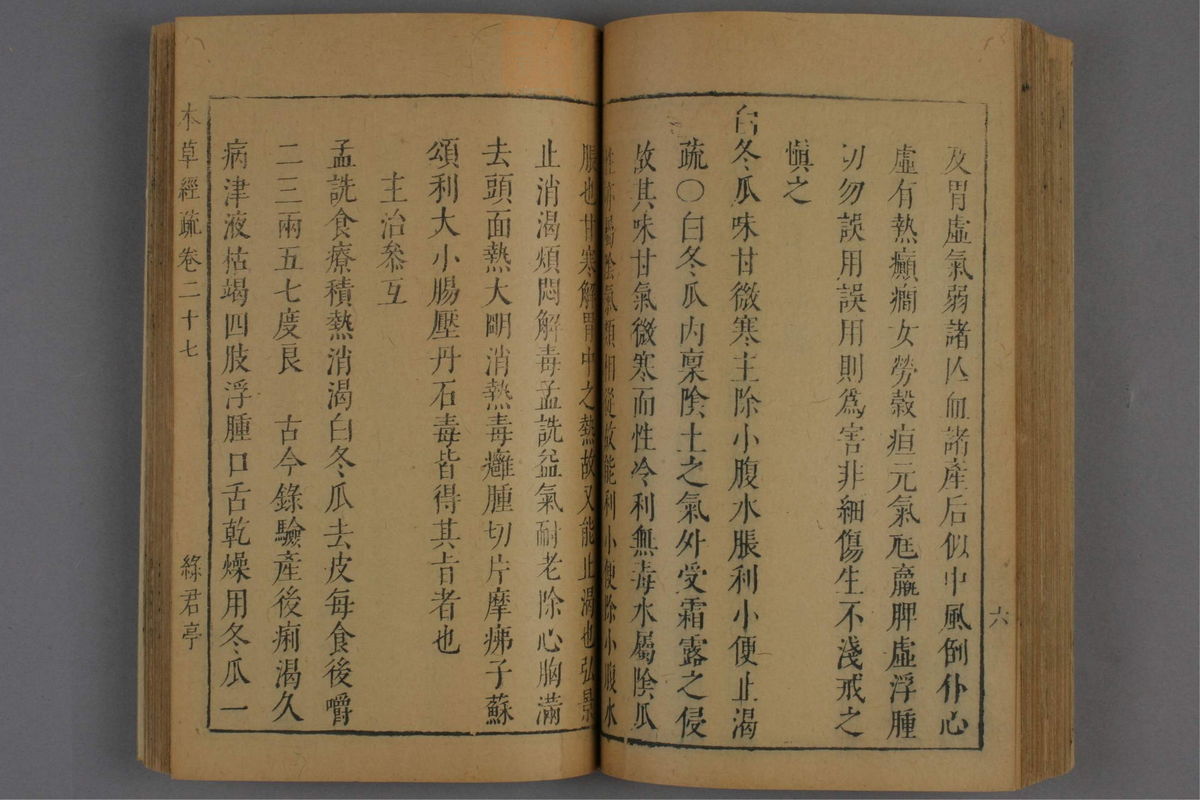 六
及胃虛氣弱諸亾血諸產后似中風倒仆心
虛有熱癲癇女勞穀疸元氣尩羸脾虛浮腫
切勿誤用誤用則爲害非細傷生不淺戒之
愼之
白冬瓜味甘微寒主除小腹水脹利小便止渴
疏〇白冬瓜內稟陰土之氣外受霜露之侵
故其味甘氣微寒而性冷利無毒水屬陰瓜
性亦屬陰氣類相從故能利小便除小腹水
脹也甘寒解胃中之熱故又能止渴也弘景
止消渴煩悶解毒孟詵益氣耐老除心胸滿
去頭面熱大明消熱毒癰腫切片摩疿子蘇
頌利大小腸壓丹石毒皆得其旨者也
主治叅互
孟詵食療積熱消渴白冬瓜去皮每食後嚼
二三兩五七度良　古今錄驗產後痢渴久
病津液枯竭四肢浮腫口舌乾燥用冬瓜一
本草經疏卷二十七　綠君亭